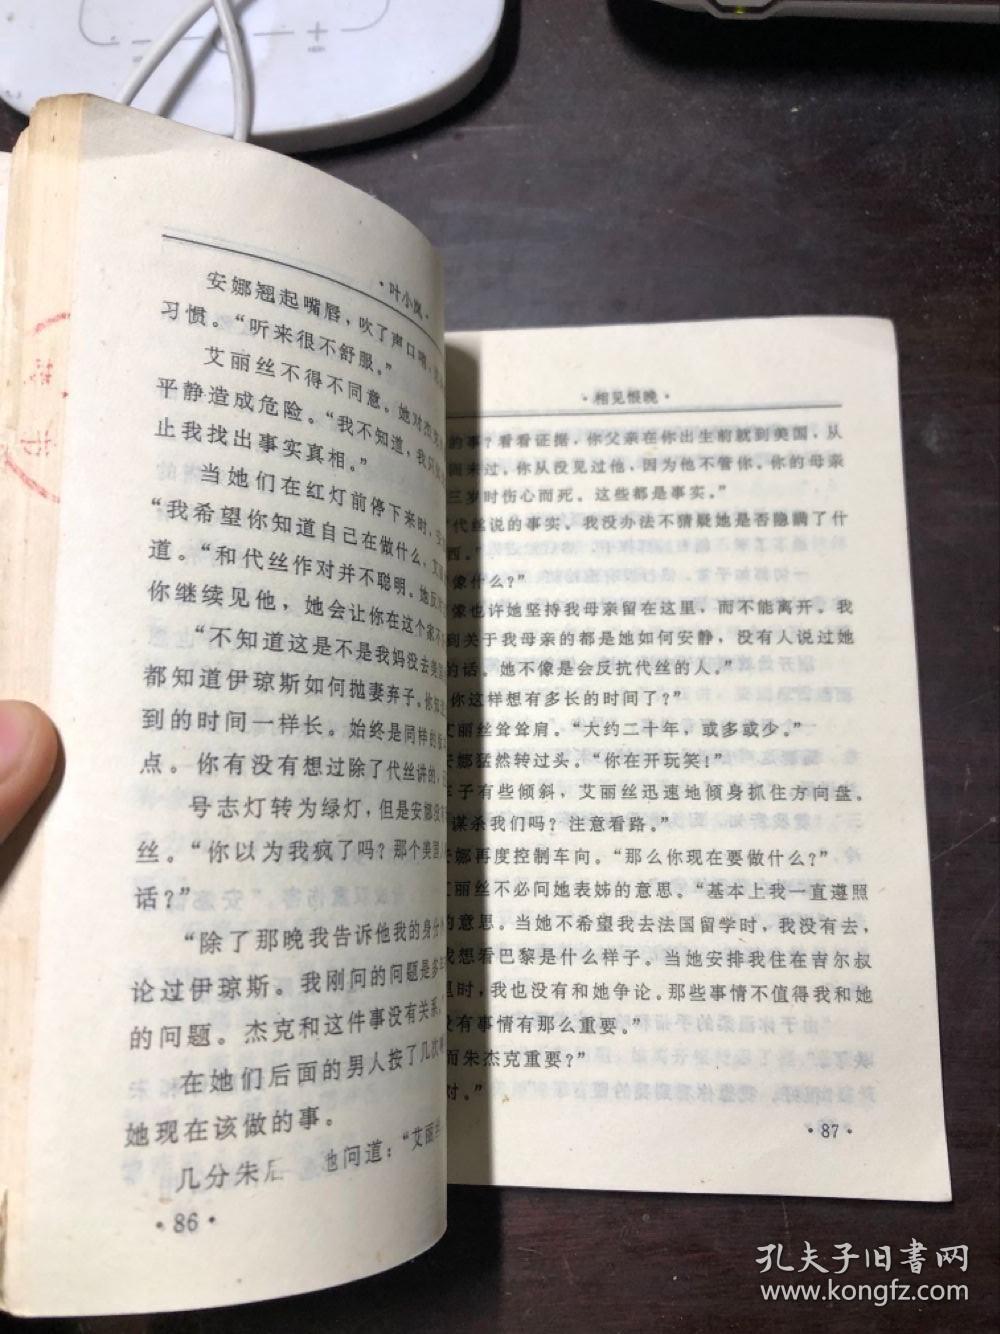 ·叶小岚·
安娜翘起嘴唇，吹了声口哨，
习惯。“听来很不舒服。”
艾丽丝不得不同意。她对杰克
平静造成危险。“我不知道，我只
止我找出事实真相。”
当她们在红灯前停下来时，安
“我希望你知道自己在做什么，艾丽
道。“和代丝作对并不聪明。她反
你继续见他，她会让你在这个家不
“不知道这是不是我妈没去美国
都知道伊琼斯如何抛妻弃子。你知
到的时间一样长。始终是同样的
点。你有没有想过除了代丝讲的，
号志灯转为绿灯，但是安娜没有
丝。“你以为我疯了吗？那个美国人
话？”
“除了那晚我告诉他我的身份
论过伊琼斯。我刚问的问题是多年
的问题。杰克和这件事没有关系。
在她们后面的男人按了几次
她现在该做的事。
几分朱后 她问道：“艾丽丝
·86·
·相见恨晚·
的事？看看证据，你父亲在你出生前就到美国，从
回来过，你从没见过他，因为他不管你。你的母亲
三岁时伤心而死。这些都是事实。”
代丝说的事实。我没办法不猜疑她是否隐瞒了什
西。”
像什么？”
像也许她坚持我母亲留在这里，而不能离开。我
到关于我母亲的都是她如何安静，没有人说过她
的话。她不像是会反抗代丝的人。”
你这样想有多长的时间了？”
艾丽丝耸耸肩。“大约二十年，或多或少。”
安娜猛然转过头。“你在开玩笑！”
车子有些倾斜，艾丽丝迅速地倾身抓住方向盘。
谋杀我们吗？注意看路。”
安娜再度控制车向。“那么你现在要做什么？”
艾丽丝不必问她表姊的意思。“基本上我一直遵照
的意思。当她不希望我去法国留学时，我没有去，
我想看巴黎是什么样子。当她安排我住在吉尔叔
里时，我也没有和她争论。那些事情不值得我和她
没有事情有那么重要。”
而朱杰克重要？”
对。”
·87·
孔夫子旧書网
www.kongfz.com